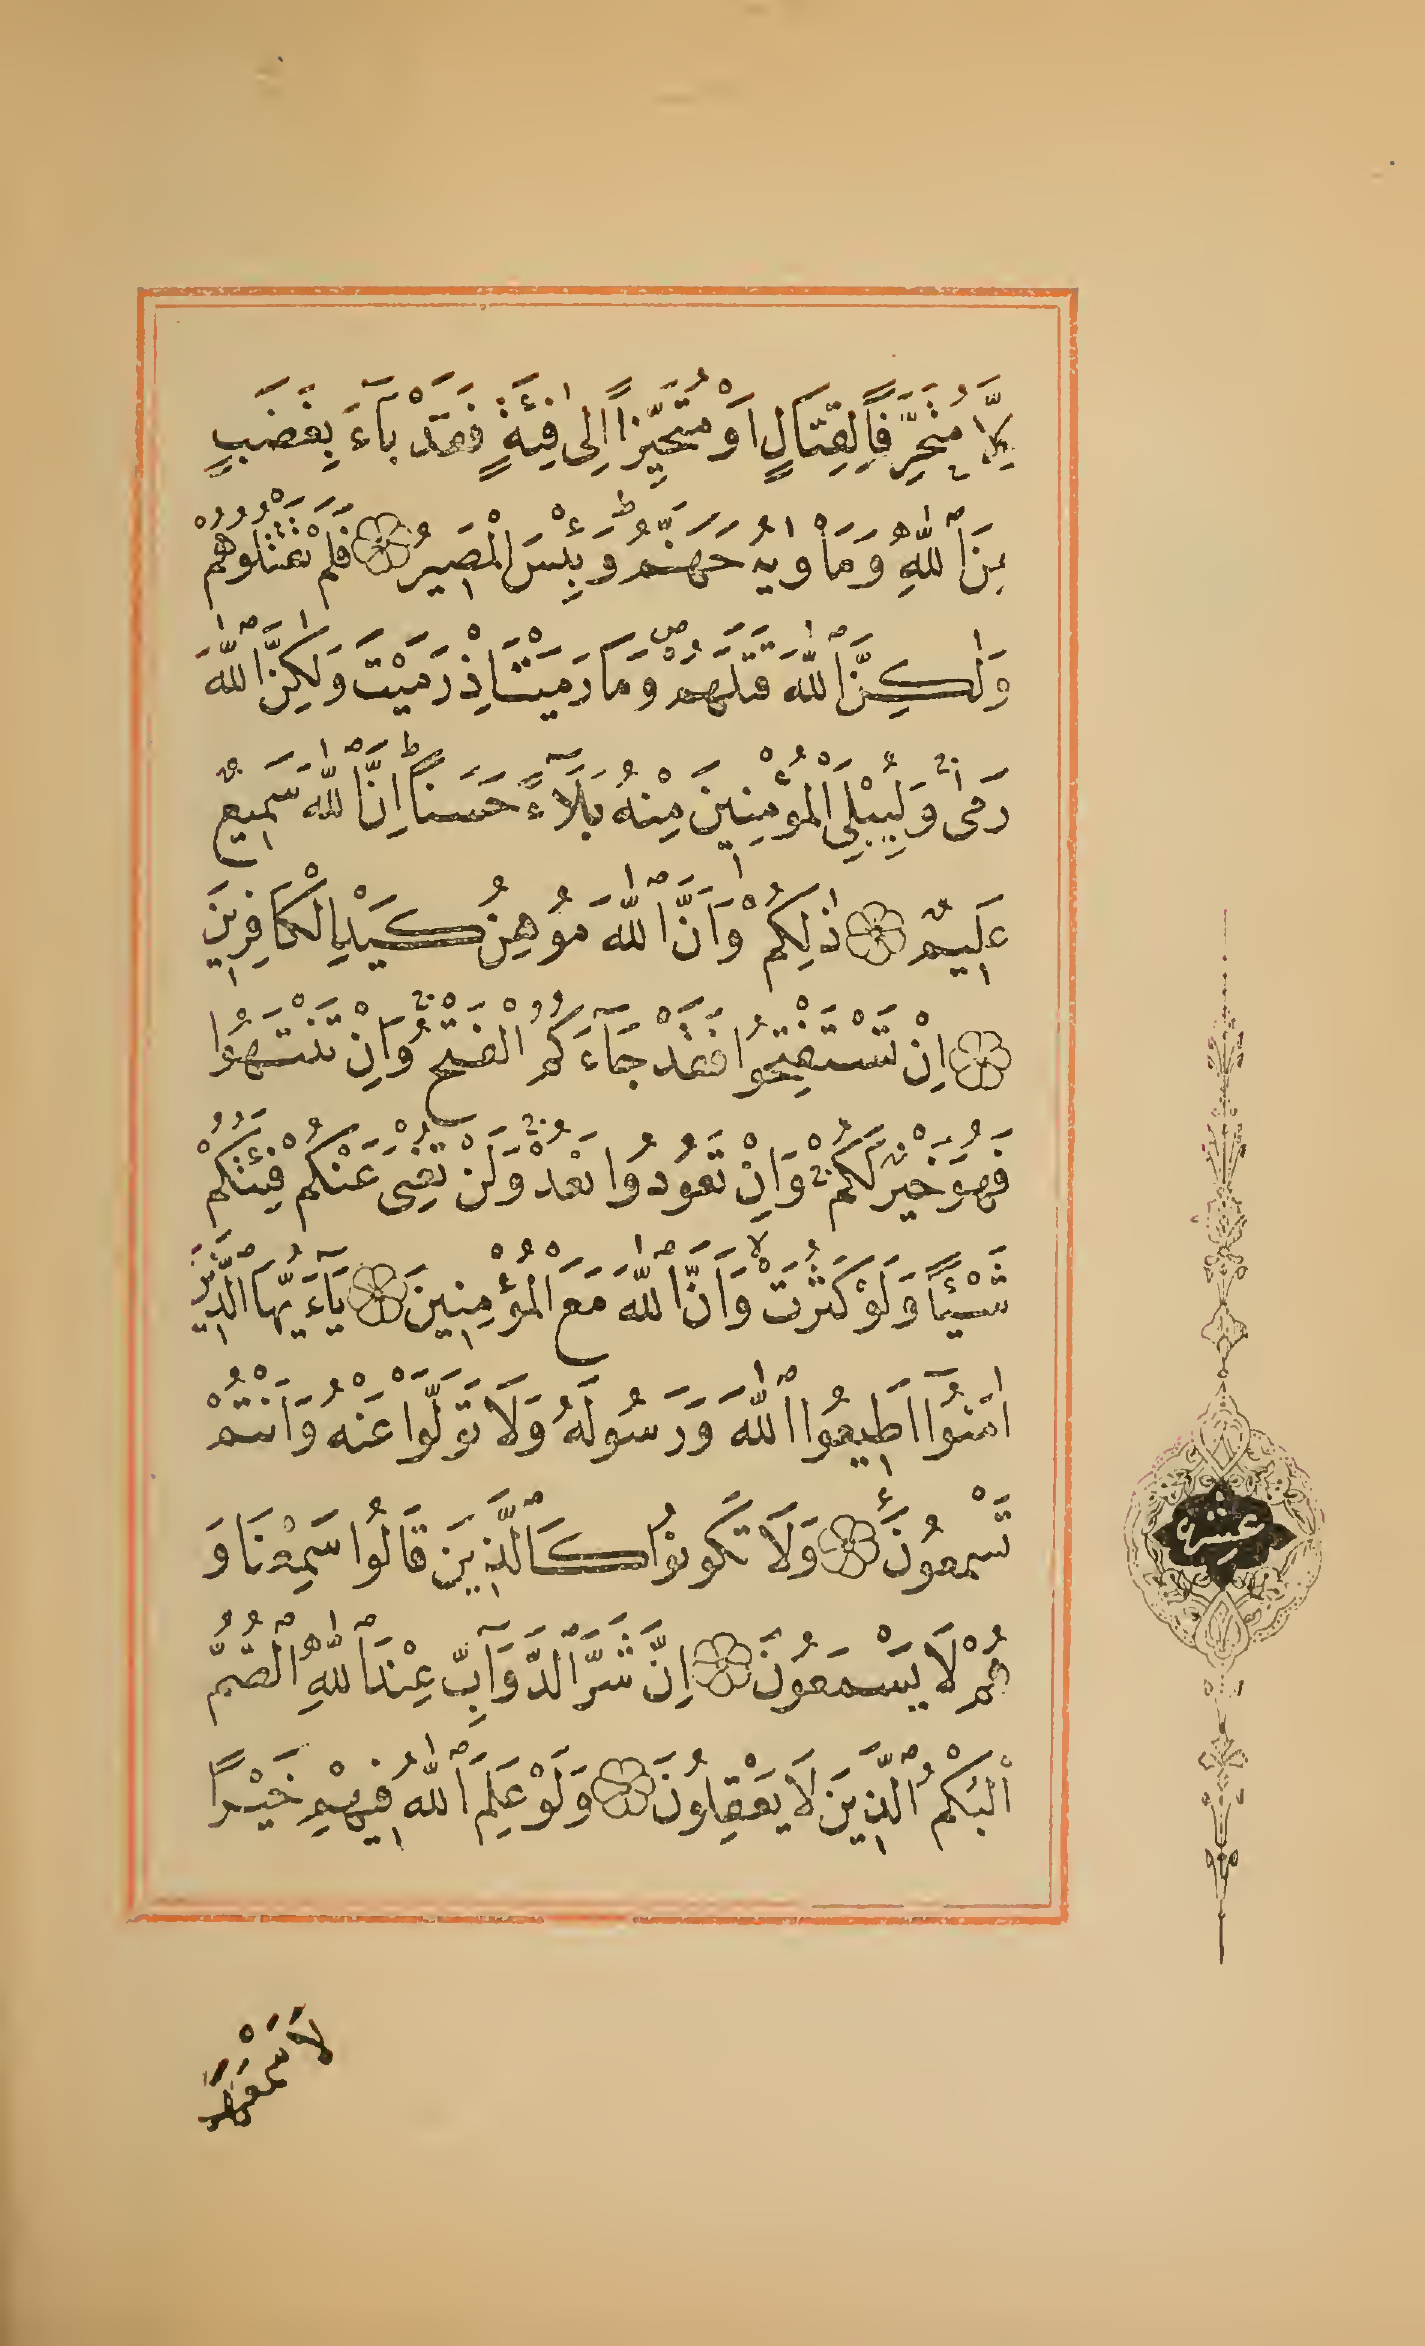 اِلَّا مُتَحَرِّفًا لِقِتَالٍ اَوْ مُتَحَيِّزًا اِلٰى فِئَةٍ فَقَدْ بَآءَ بِغَضَبٍ
مِنَ ٱللّٰهِ وَمَاْوٰيهُ جَهَنَّمُ ط وَبِئْسَ الْمَصِيرُ فَلَمْ تَقْتُلُوهُمْ
وَلٰكِنَّ ٱللّٰهَ قَتَلَهُمْ ص وَمَا رَمَيْتَ اِذْ رَمَيْتَ وَلٰكِنَّ ٱللّٰهَ
رَمٰى ج وَلِيُبْلِيَ الْمُؤْمِنِينَ مِنْهُ بَلَآءً حَسَنًا ط اِنَّ ٱللّٰهَ سَمِيعٌ
عَلِيمٌ ذٰلِكُمْ وَاَنَّ ٱللّٰهَ مُوهِنُ كَيْدِ الْكَافِرِينَ
اِنْ تَسْتَفْتِحُوا فَقَدْ جَآءَكُمُ الْفَتْحُ ج وَاِنْ تَنْتَهُوا
فَهُوَ خَيْرٌ لَكُمْ ج وَاِنْ تَعُودُوا نَعُدْ ج وَلَنْ تُغْنِىَ عَنْكُمْ فِئَتُكُمْ
شَيْئًا وَلَوْ كَثُرَتْ لا وَاَنَّ ٱللّٰهَ مَعَ الْمُؤْمِنِينَ يَآءَيُّهَا الَّذِينَ
اٰمَنُوٓا اَطِيعُوا ٱللّٰهَ وَرَسُولَهُ وَلَا تَوَلَّوْا عَنْهُ وَاَنْتُمْ
تَسْمَعُونَ وَلَا تَكُونُوا كَالَّذِينَ قَالُوا سَمِعْنَا وَ
هُمْ لَا يَسْمَعُونَ اِنَّ شَرَّ ٱلدَّوَآبِّ عِنْدَ ٱللّٰهِ ٱلصُّمُّ
الْبُكْمُ ٱلَّذِينَ لَا يَعْقِلُونَ وَلَوْ عَلِمَ ٱللّٰهُ فِيهِمْ خَيْرًا
عشر
لَاَسْمَعَهُمْ